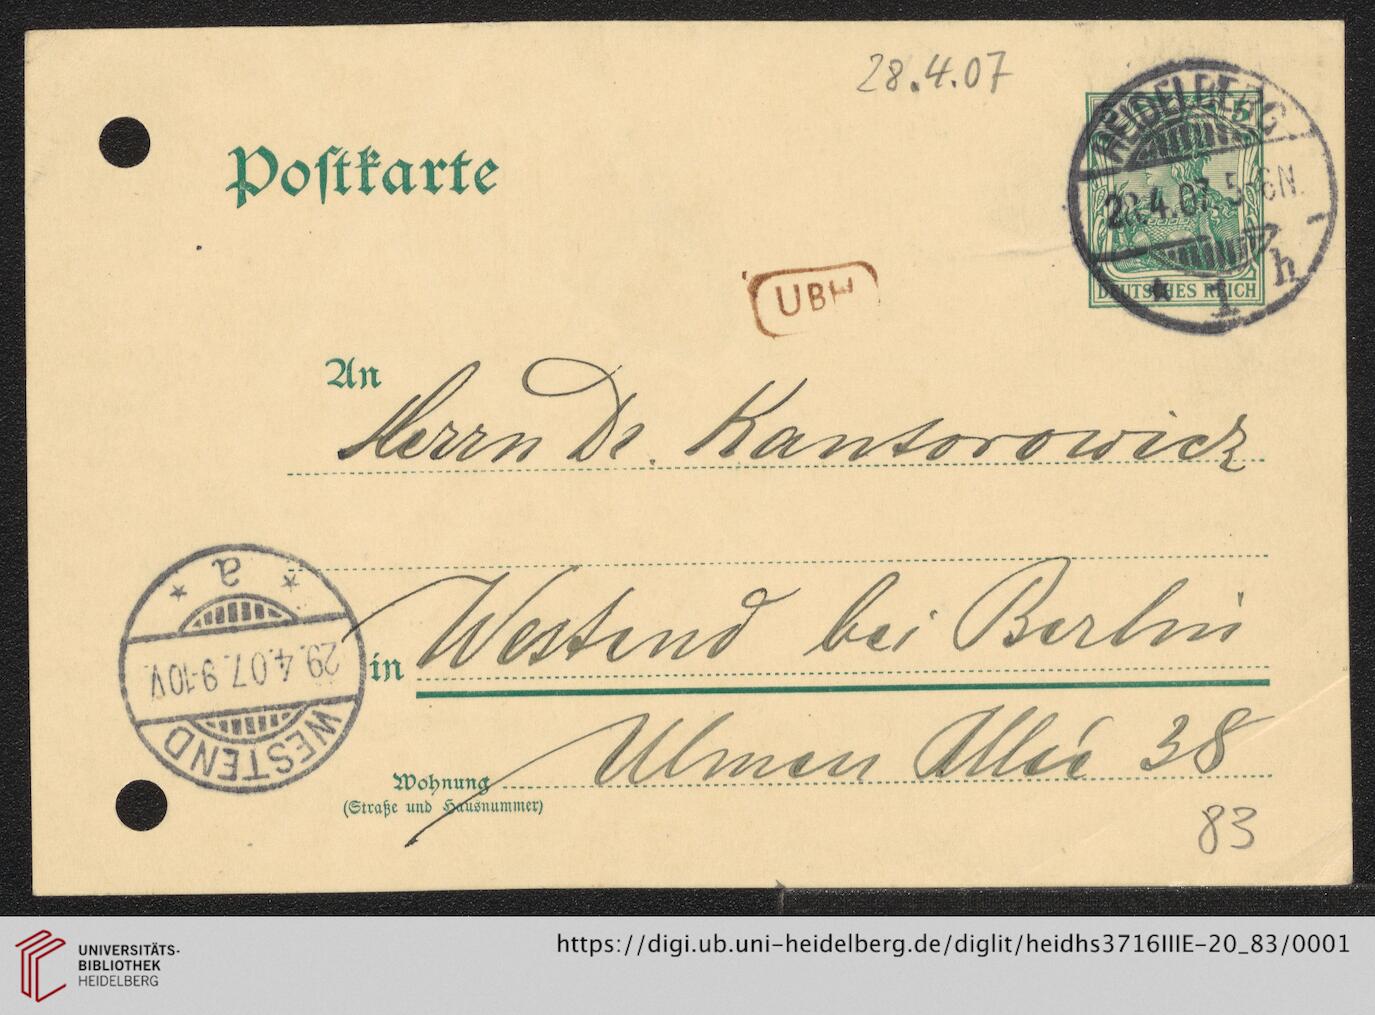 28.4.07
Postkarte
HEIDELBERG
28.4.07. 5-6N.
* 1 h
DEUTSCHES REICH
UBH
An
Herrn Dr. Kantorowicz
in Westend bei Berlin
Ulmen Allee 38
Wohnung
(Straße und Hausnummer)
a
29.4.07. 9-10V.
WESTEND
83
UNIVERSITÄTS-
BIBLIOTHEK
HEIDELBERG
https://digi.ub.uni-heidelberg.de/diglit/heidhs3716IIIE-20_83/0001